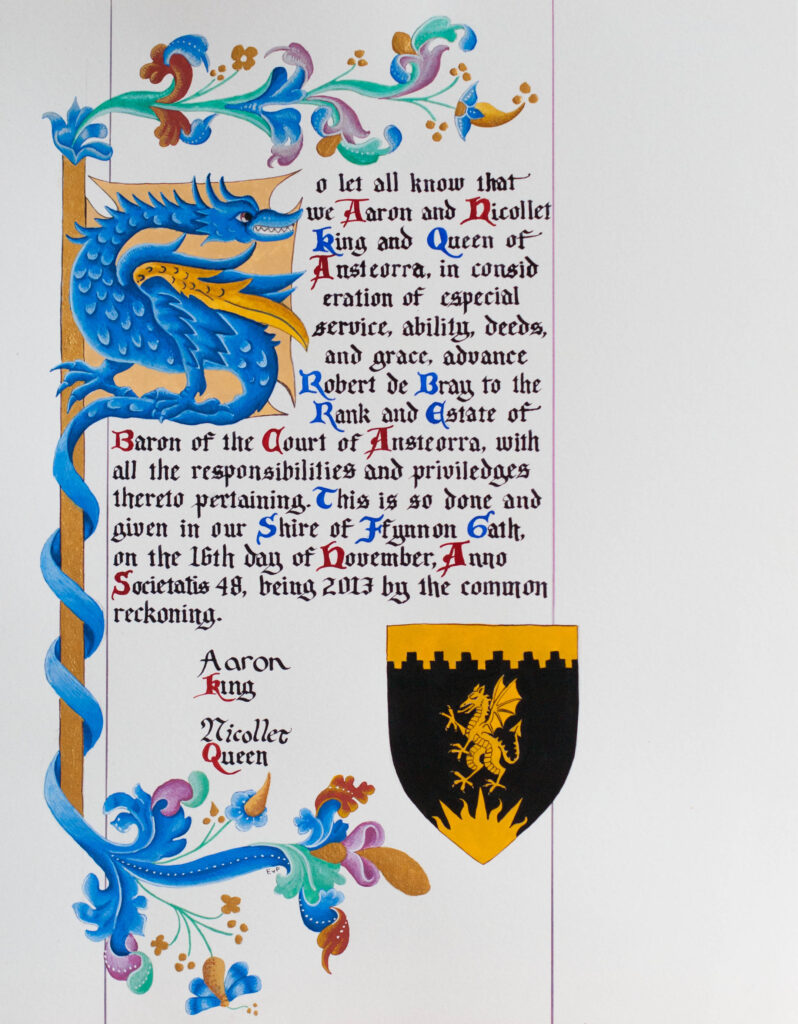 o let all know that
we Aaron and Nicollet
King and Queen of
Ansteorra, in consid
eration of especial
service, ability, deeds,
and grace, advance
Robert de Bray to the
Rank and Estate of
Baron of the Court of Ansteorra, with
all the responsibilities and priviledges
thereto pertaining. This is so done and
given in our Shire of Ffynnon Gath,
on the 16th day of November, Anno
Societatis 48, being 2013 by the common
reckoning.
Aaron
King
Nicollet
Queen